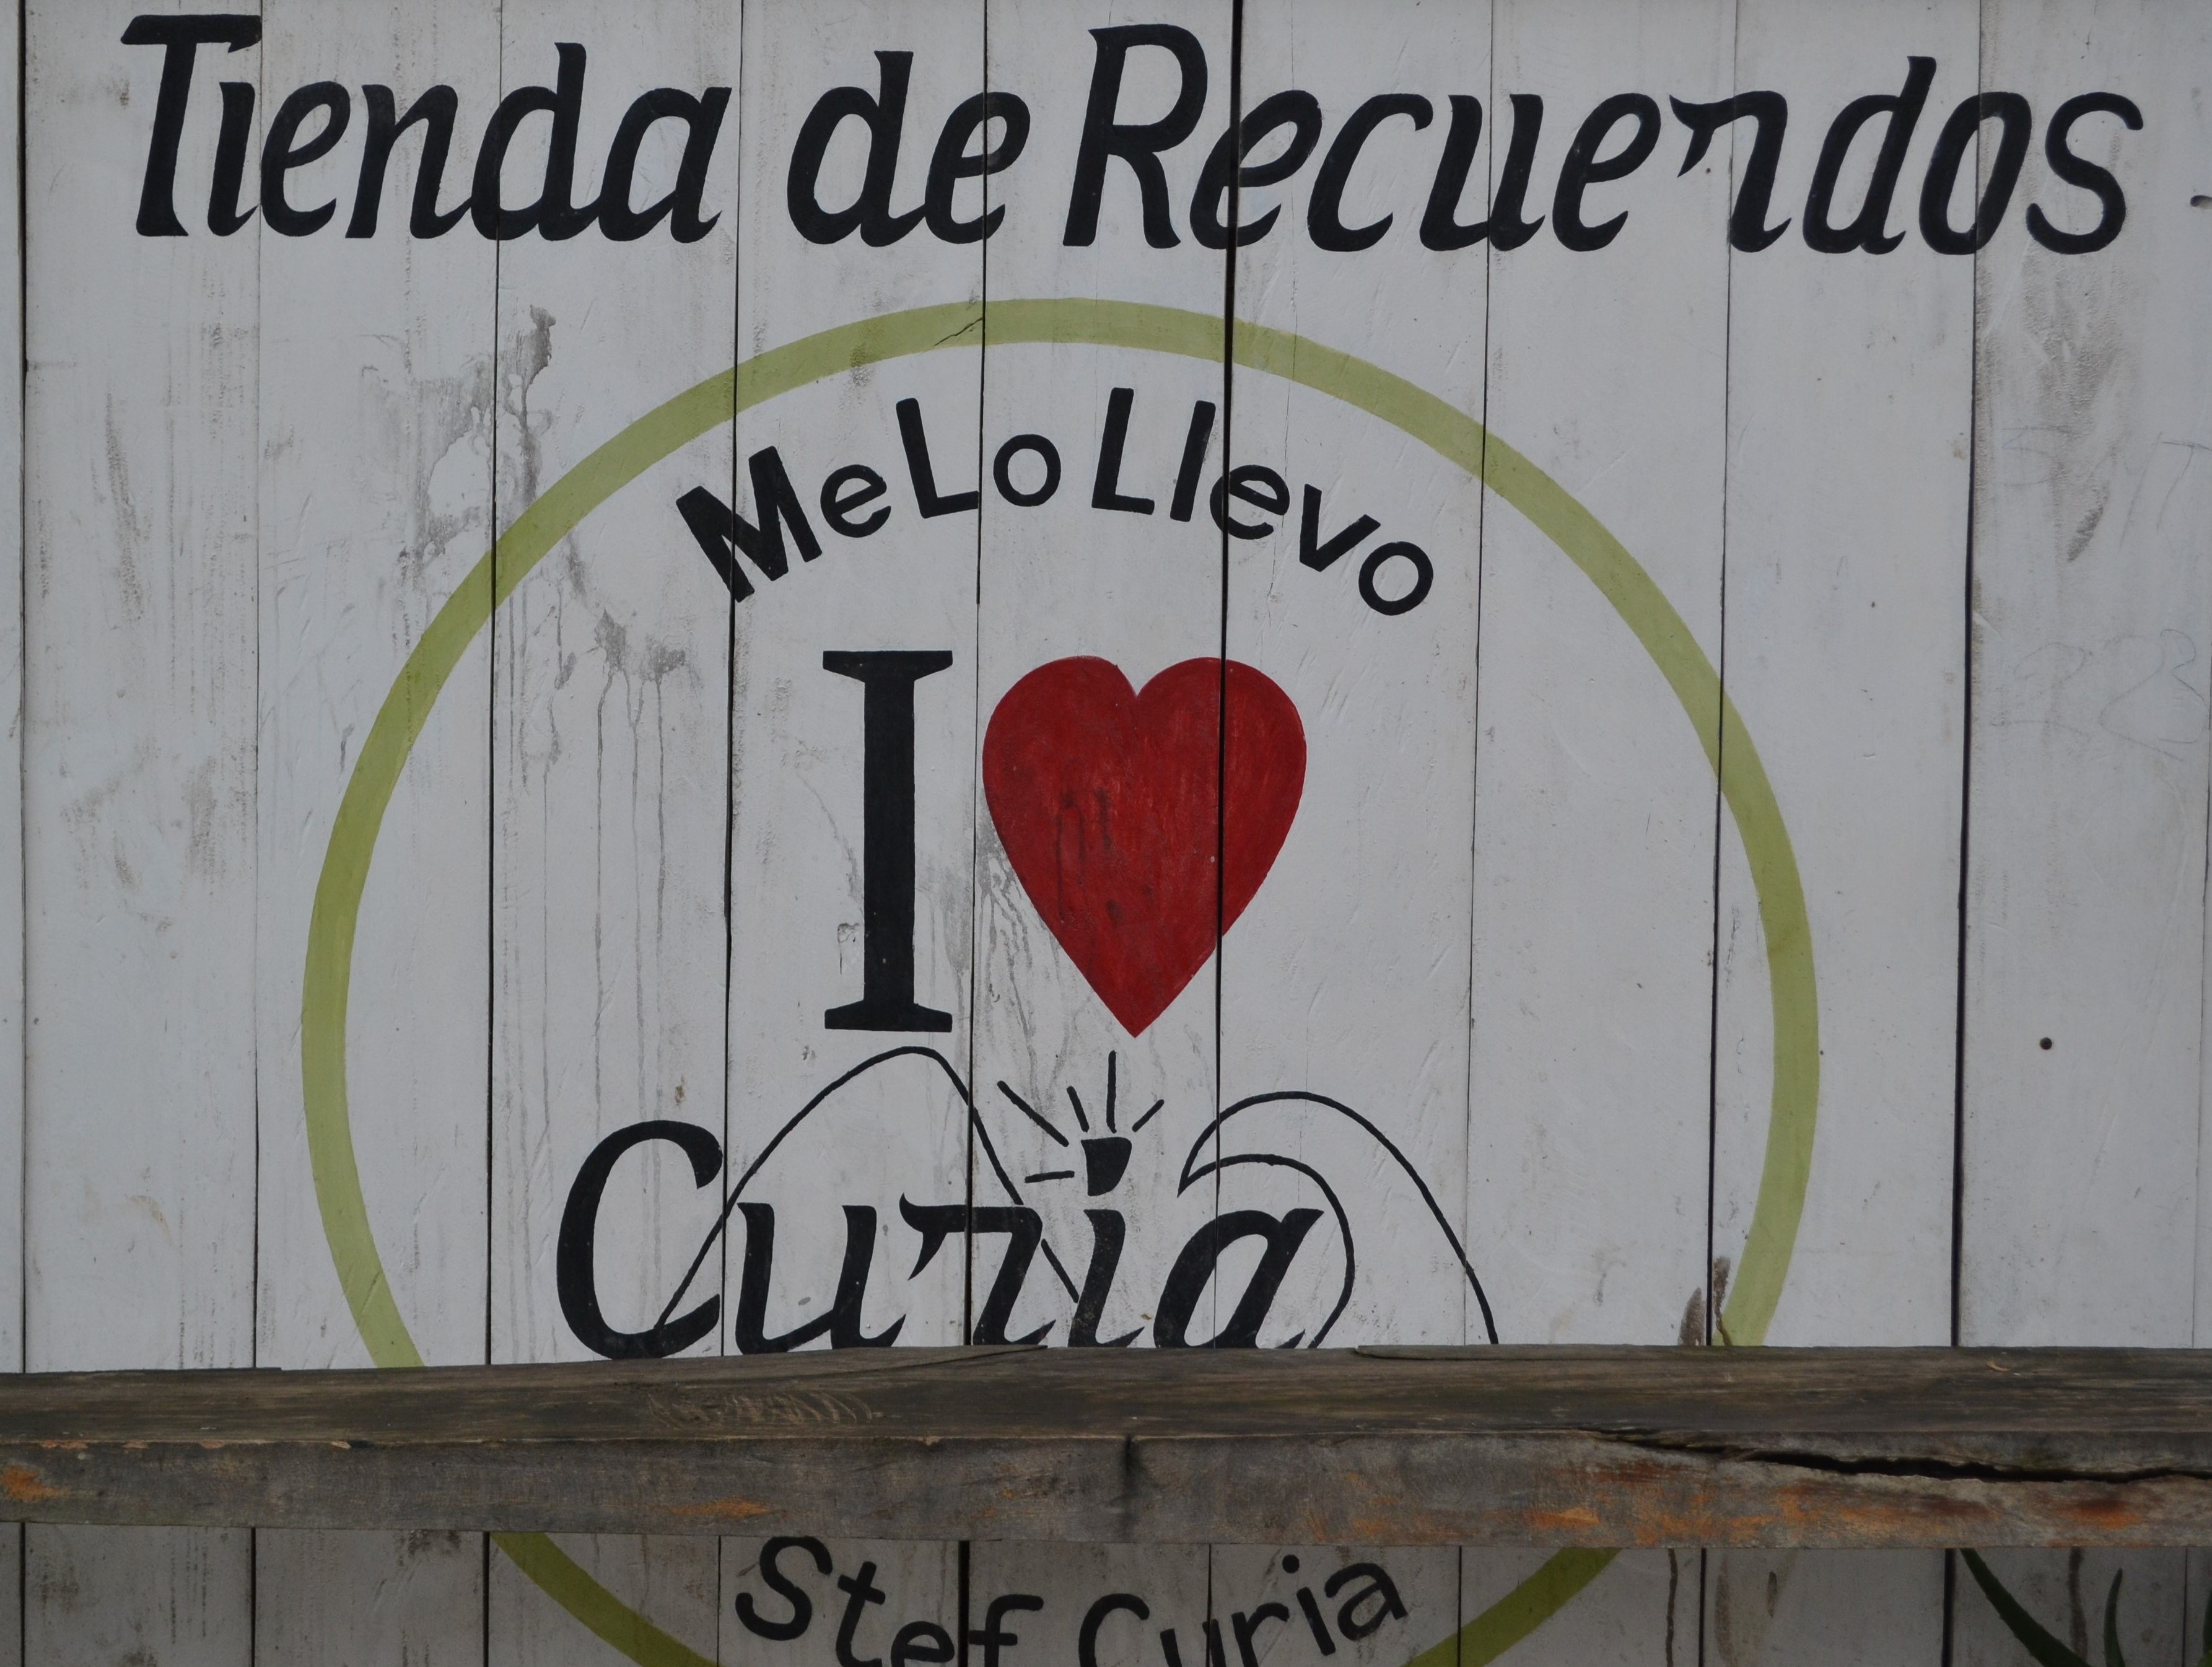 Tienda de Recuerdos
Me Lo Llevo
I ♥
Curia
Stef Curia